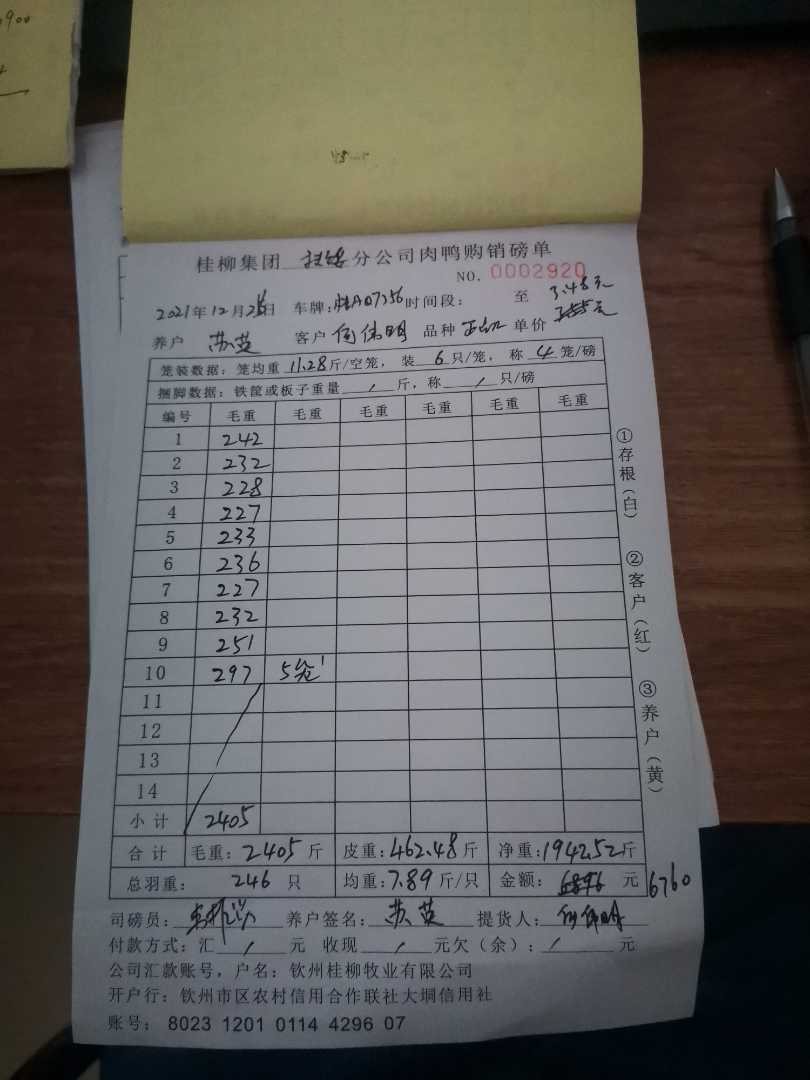 900
桂柳集团 分公司肉鸭购销磅单
NO. 0002920
2021年12月 日 车牌：桂A07356 时间段： 至 3.48元
养户 苏英 客户 何伟明 品种 单价 元
笼装数据：笼均重 11.28 斤/空笼，装 6 只/笼，称 4 笼/磅
捆脚数据：铁筐或板子重量 / 斤，称 / 只/磅
编号 毛重 毛重 毛重 毛重 毛重 毛重
1 242
2 232
3 228
4 227
5 233
6 236
7 227
8 232
9 251
10 297 5笼
11
12
13
14
小计 2405
合计 毛重：2405斤 皮重：462.48斤 净重：1942.52斤
总羽重： 246 只 均重：7.89斤/只 金额： 元 6760
司磅员： 养户签名：苏英 提货人：何伟明
付款方式：汇 / 元 收现 / 元欠（余）： / 元
公司汇款账号，户名：钦州桂柳牧业有限公司
开户行：钦州市区农村信用合作联社大垌信用社
账号： 8023 1201 0114 4296 07
①存根（白）
②客户（红）
③养户（黄）